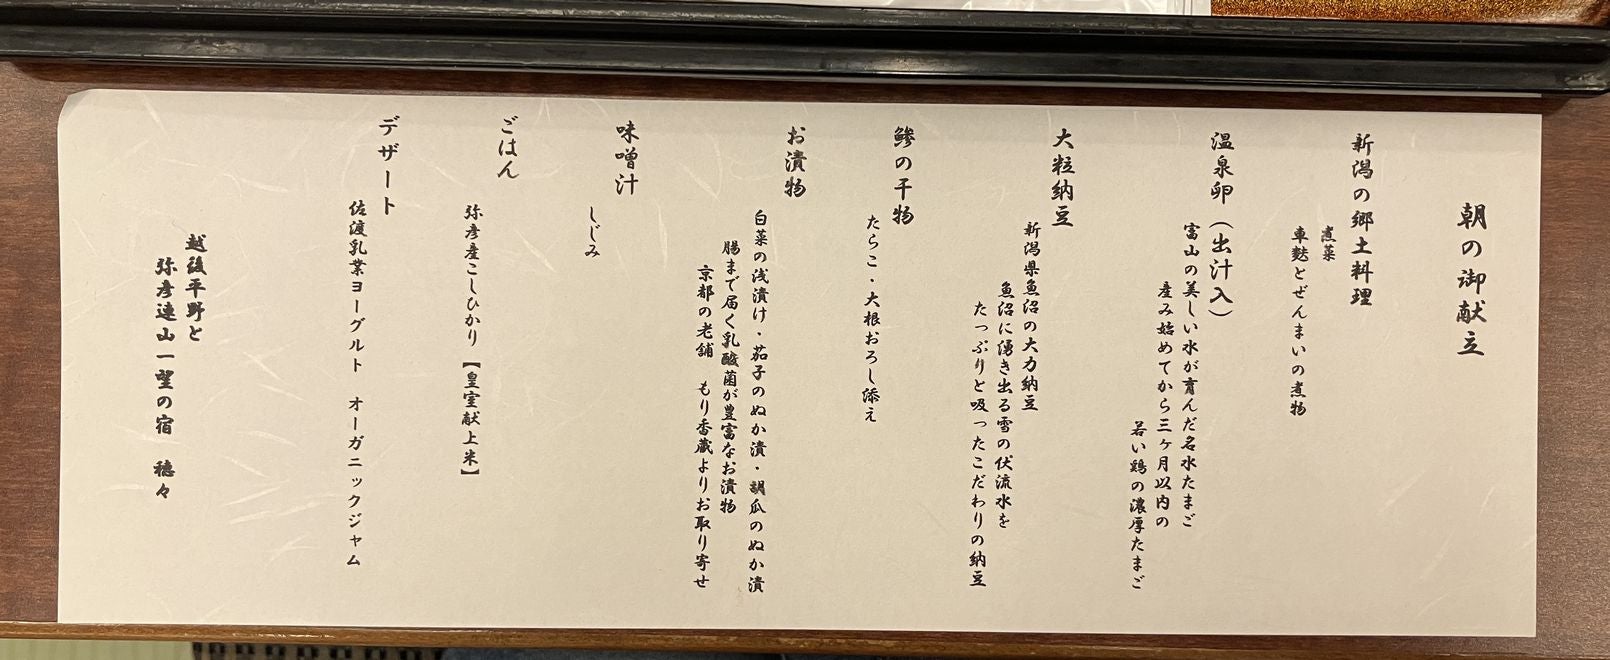 朝の御献立
新潟の郷土料理
煮菜
車麩とぜんまいの煮物
温泉卵（出汁入）
富山の美しい水が育んだ名水たまご
産み始めてから三ヶ月以内の
若い鶏の濃厚たまご
大粒納豆
新潟県魚沼の大力納豆
魚沼に湧き出る雪の伏流水を
たっぷりと吸ったこだわりの納豆
鯵の干物
たらこ・大根おろし添え
お漬物
白菜の浅漬け・茄子のぬか漬・胡瓜のぬか漬
腸まで届く乳酸菌が豊富なお漬物
京都の老舗　もり香蔵よりお取り寄せ
味噌汁
しじみ
ごはん
弥彦産こしひかり【皇室献上米】
デザート
佐渡乳業ヨーグルト　オーガニックジャム
越後平野と
弥彦連山一望の宿　穂々